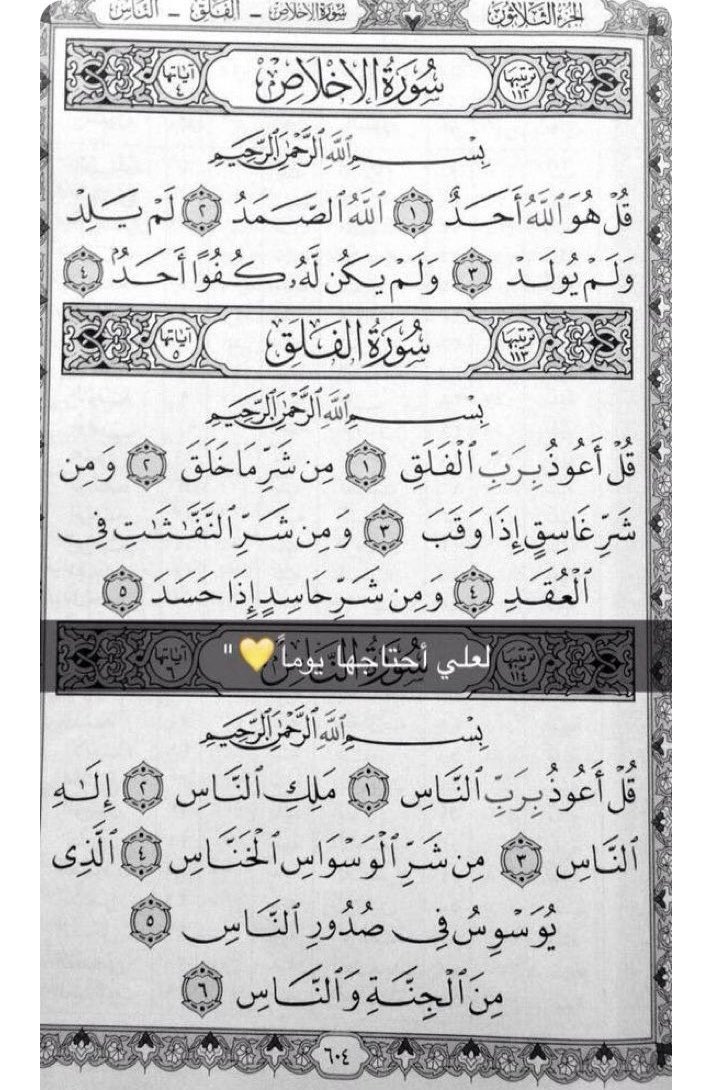 الجزء الثلاثون سورة الإخلاص - الفلق - الناس
ترتيبها ١١٢ سُورَةُ الإِخْلَاصِ آياتها ٤
بِسْمِ ٱللَّهِ ٱلرَّحْمَٰنِ ٱلرَّحِيمِ
قُلْ هُوَ ٱللَّهُ أَحَدٌ ١ ٱللَّهُ ٱلصَّمَدُ ٢ لَمْ يَلِدْ
وَلَمْ يُولَدْ ٣ وَلَمْ يَكُن لَّهُۥ كُفُوًا أَحَدٌۢ ٤
ترتيبها ١١٣ سُورَةُ الفَلَقِ آياتها ٥
بِسْمِ ٱللَّهِ ٱلرَّحْمَٰنِ ٱلرَّحِيمِ
قُلْ أَعُوذُ بِرَبِّ ٱلْفَلَقِ ١ مِن شَرِّ مَا خَلَقَ ٢ وَمِن
شَرِّ غَاسِقٍ إِذَا وَقَبَ ٣ وَمِن شَرِّ ٱلنَّفَّٰثَٰتِ فِى
ٱلْعُقَدِ ٤ وَمِن شَرِّ حَاسِدٍ إِذَا حَسَدَ ٥
ترتيبها ١١٤ سُورَةُ النَّاسِ آياتها ٦
لعلي أحتاجها يوماً💛 "
بِسْمِ ٱللَّهِ ٱلرَّحْمَٰنِ ٱلرَّحِيمِ
قُلْ أَعُوذُ بِرَبِّ ٱلنَّاسِ ١ مَلِكِ ٱلنَّاسِ ٢ إِلَٰهِ
ٱلنَّاسِ ٣ مِن شَرِّ ٱلْوَسْوَاسِ ٱلْخَنَّاسِ ٤ ٱلَّذِى
يُوَسْوِسُ فِى صُدُورِ ٱلنَّاسِ ٥
مِنَ ٱلْجِنَّةِ وَٱلنَّاسِ ٦
٦٠٤